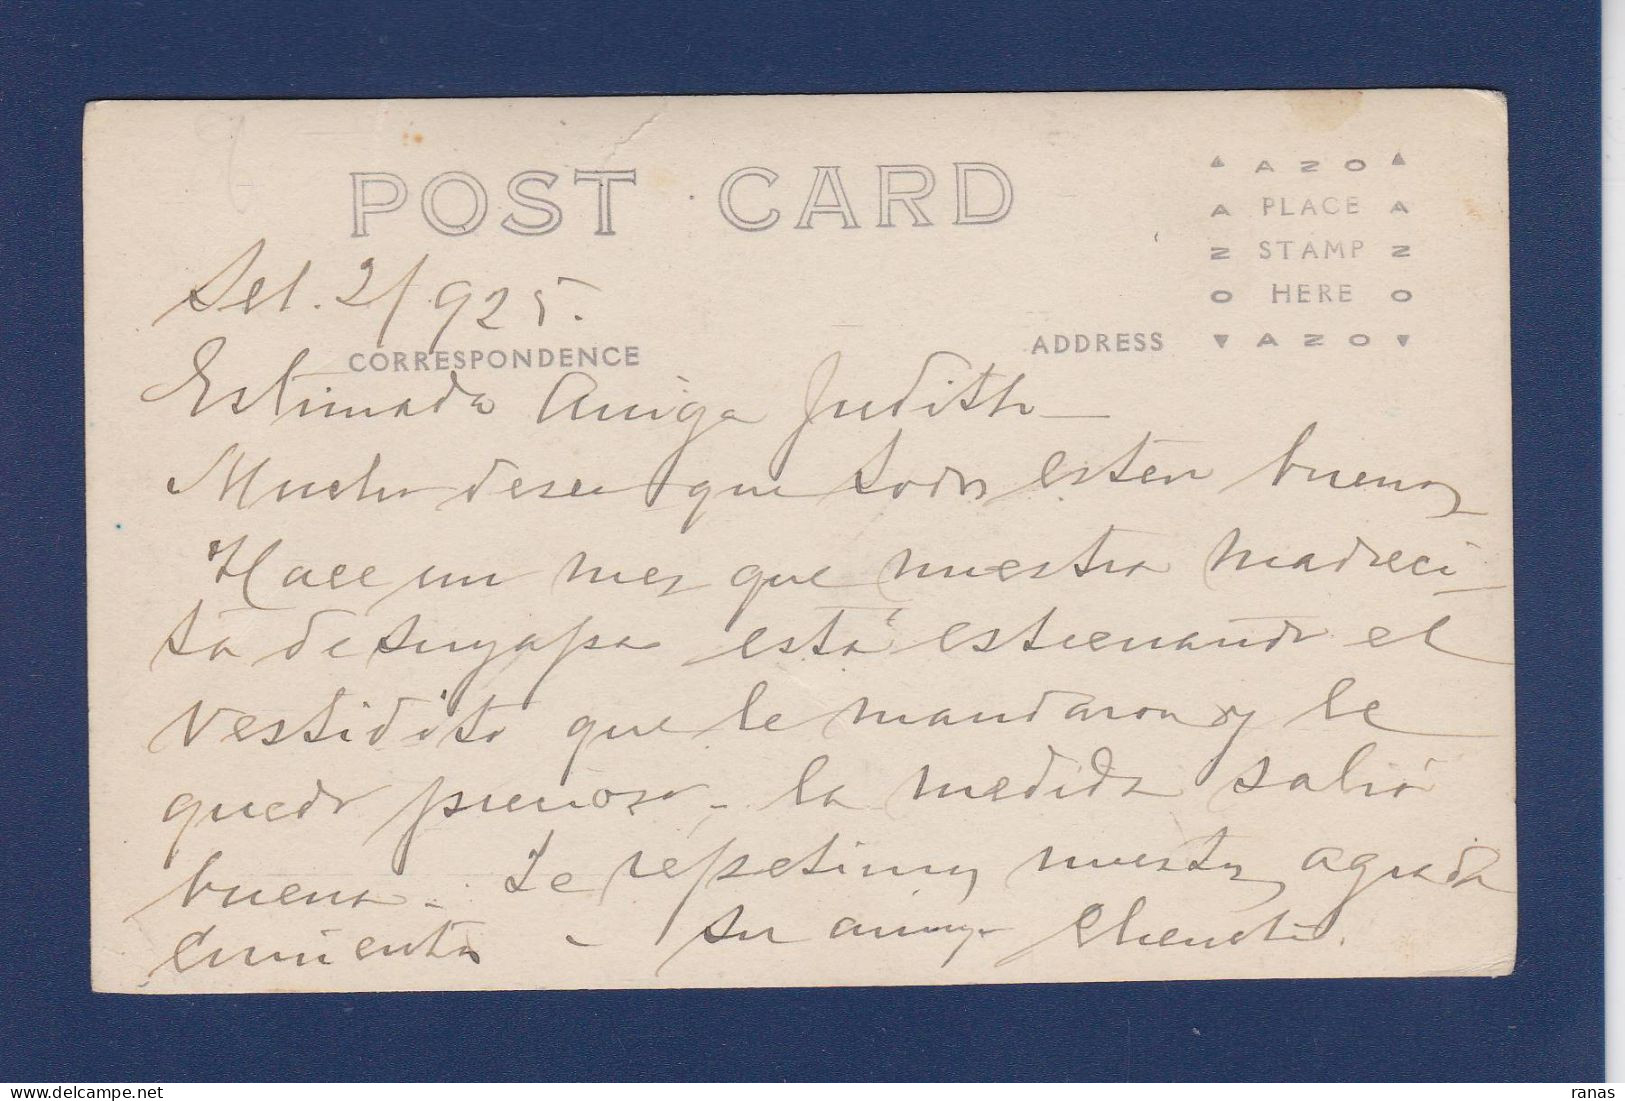 POST CARD
AZO
A PLACE A
N STAMP N
O HERE O
AZO
Set. 2/925.
CORRESPONDENCE
ADDRESS
Estimada Amiga Judith
Mucho deseo que todos esten buenos
Hace un mes que nuestra madreci-
ta de Suyapa está estrenando el
vestidito que le mandaron y le
quedo precioso - la medida salió
buena - Le repetimos nuestros agrade
cimientos - Su amiga
ranas